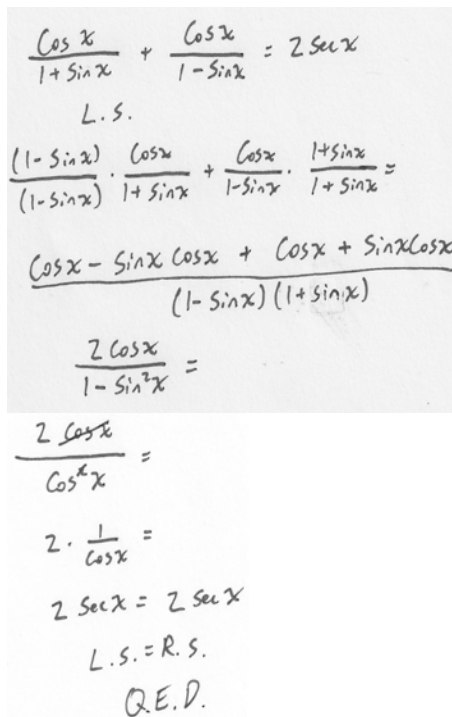 Cos x / 1 + Sin x + Cos x / 1 - Sin x = 2 Sec x
L.S.
(1 - Sin x) / (1 - Sin x) · Cos x / 1 + Sin x + Cos x / 1 - Sin x · 1 + Sin x / 1 + Sin x =
Cos x - Sin x Cos x + Cos x + Sin x Cos x / (1 - Sin x) (1 + Sin x)
2 Cos x / 1 - Sin² x =
2 Cos x / Cos² x =
2 · 1 / Cos x =
2 Sec x = 2 Sec x
L.S. = R.S.
Q.E.D.